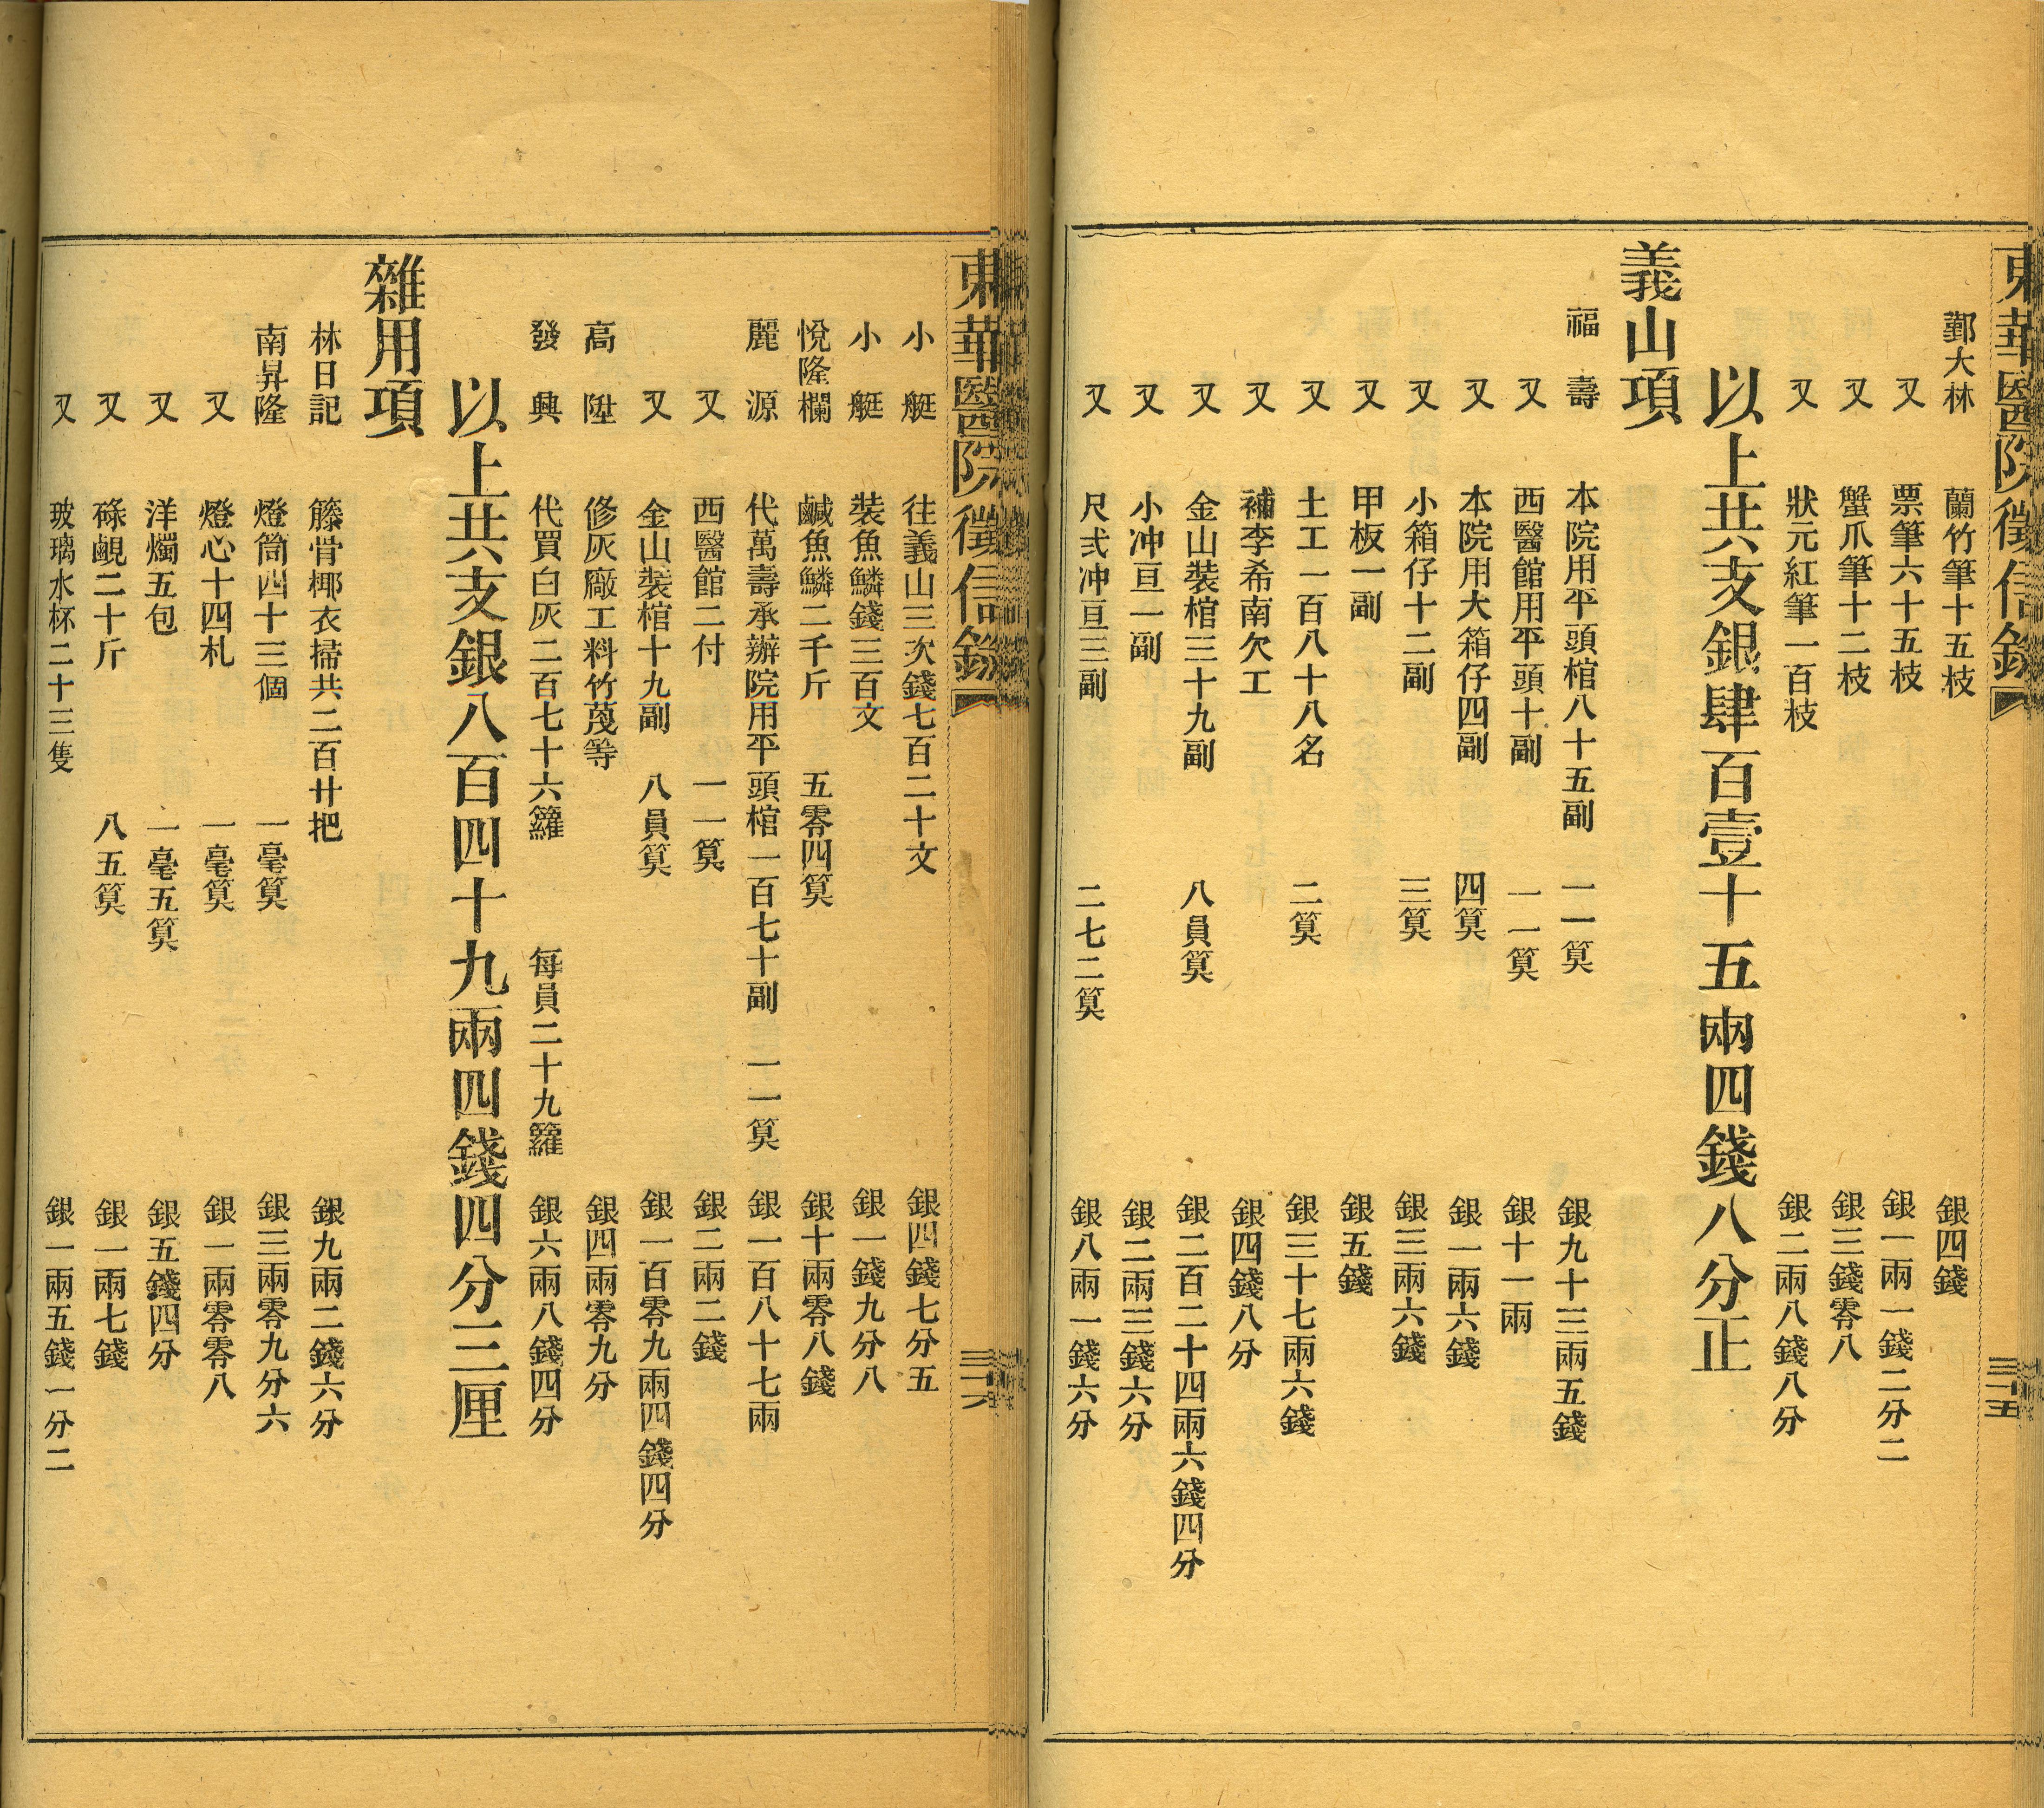 東華醫院徵信錄
三十五
鄞大林 蘭竹筆十五枝 銀四錢
又 票筆六十五枝 銀一兩一錢二分二
又 蟹爪筆十二枝 銀三錢零八
又 狀元紅筆一百枝 銀二兩八錢八分
以上共支銀肆百壹十五兩四錢八分正
義山項
福壽 本院用平頭棺八十五副 一一筭 銀九十三兩五錢
又 西醫館用平頭十副 一一筭 銀十一兩
又 本院用大箱仔四副 四筭 銀一兩六錢
又 小箱仔十二副 三筭 銀三兩六錢
又 甲板一副 銀五錢
又 土工一百八十八名 二筭 銀三十七兩六錢
又 補李希南欠工 銀四錢八分
又 金山裝棺三十九副 八員筭 銀二百二十四兩六錢四分
又 小冲亘一副 銀二兩三錢六分
又 尺弍冲亘三副 二七二筭 銀八兩一錢六分
東華醫院徵信錄
三十六
小艇 往義山三次錢七百二十文 銀四錢七分五
小艇 裝魚鱗錢三百文 銀一錢九分八
悅隆欄 鹹魚鱗二千斤 五零四筭 銀十兩零八錢
麗源 代萬壽承辦院用平頭棺一百七十副 一一筭 銀一百八十七兩
又 西醫館二付 一一筭 銀二兩二錢
又 金山裝棺十九副 八員筭 銀一百零九兩四錢四分
高陞 修灰廠工料竹蔑等 銀四兩零九分
發興 代買白灰二百七十六籮 每員二十九籮 銀六兩八錢四分
以上共支銀八百四十九兩四錢四分三厘
雜用項
林日記 籐骨椰衣掃共二百廿把 銀九兩二錢六分
南昇隆 燈筒四十三個 一毫筭 銀三兩零九分六
又 燈心十四札 一毫筭 銀一兩零零八
又 洋燭五包 一毫五筭 銀五錢四分
又 碌鹼二十斤 八五筭 銀一兩七錢
又 玻璃水杯二十三隻 銀一兩五錢一分二